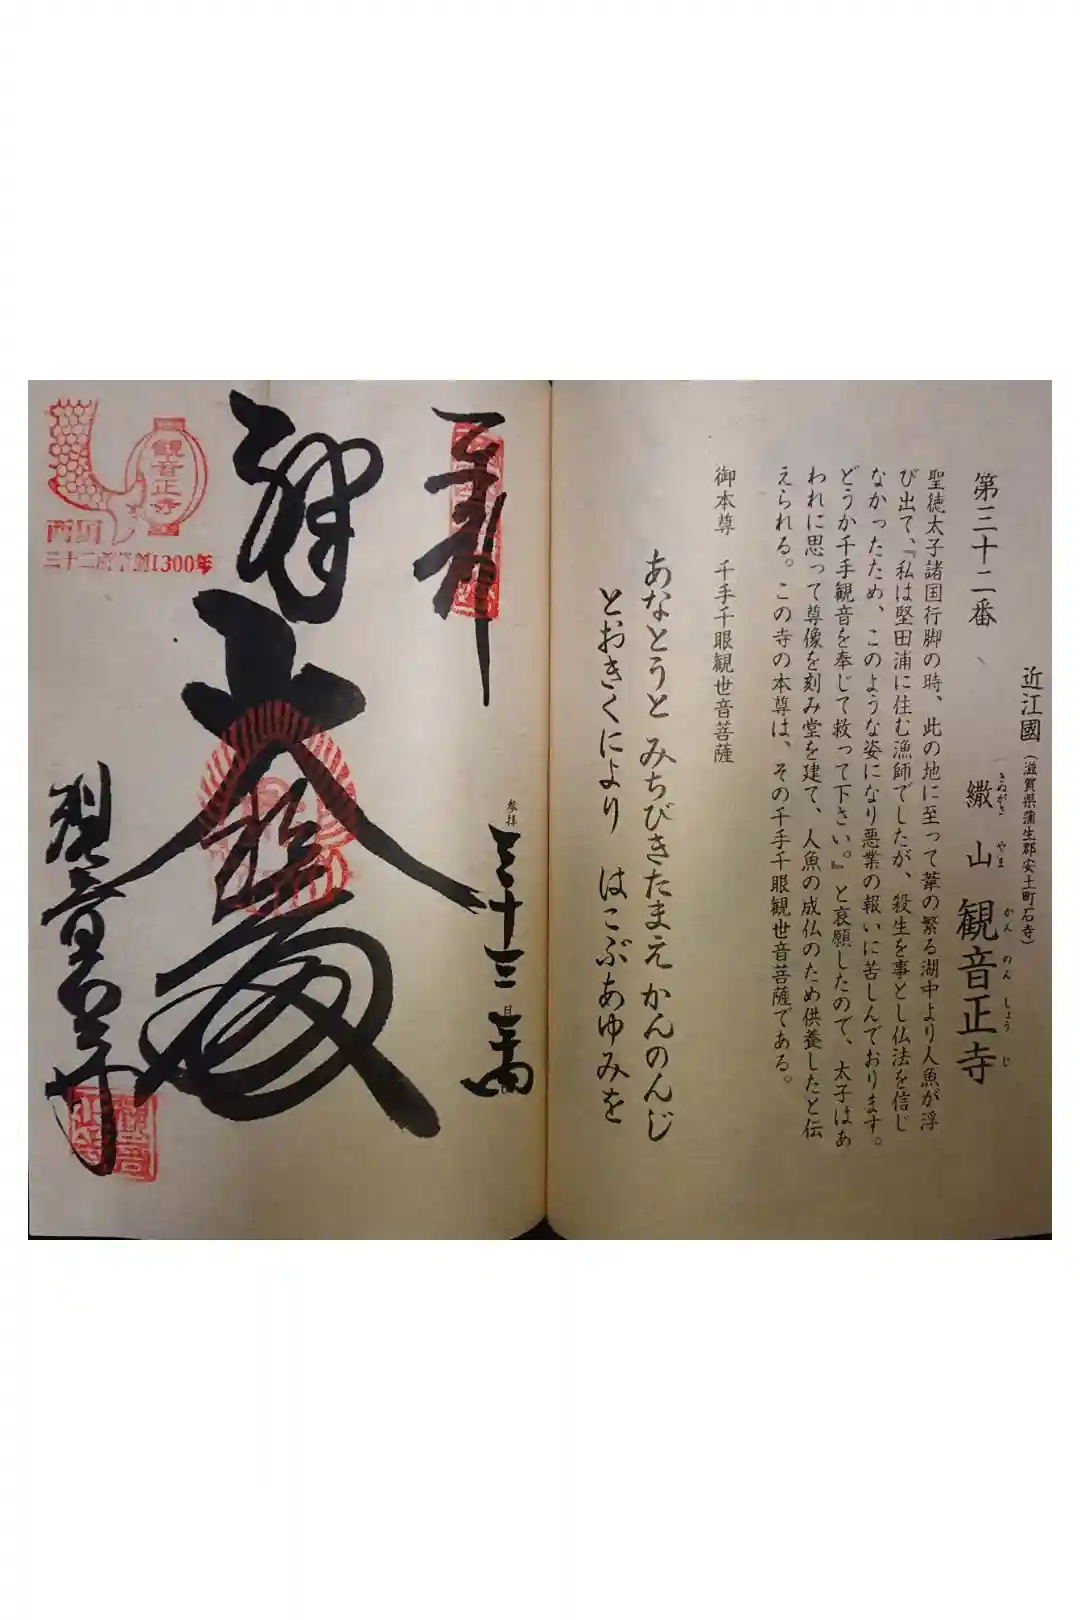 近江國（滋賀県蒲生郡安土町石寺）
第三十二番　繖山　観音正寺
きぬがさ　やま　かんのんしょうじ
聖徳太子諸国行脚の時、此の地に至って葦の繁る湖中より人魚が浮
び出て、『私は堅田浦に住む漁師でしたが、殺生を事とし仏法を信じ
なかったため、このような姿になり悪業の報いに苦しんでおります。
どうか千手観音を奉じて救って下さい。』と哀願したので、太子はあ
われに思って尊像を刻み堂を建て、人魚の成仏のため供養したと伝
えられる。この寺の本尊は、その千手千眼観世音菩薩である。
御本尊　千手千眼観世音菩薩
あなとうと　みちびきたまえ　かんのんじ
とおきくにより　はこぶあゆみを
参拝
奉拝
大悲殿
観音正寺
観音正寺
1300年